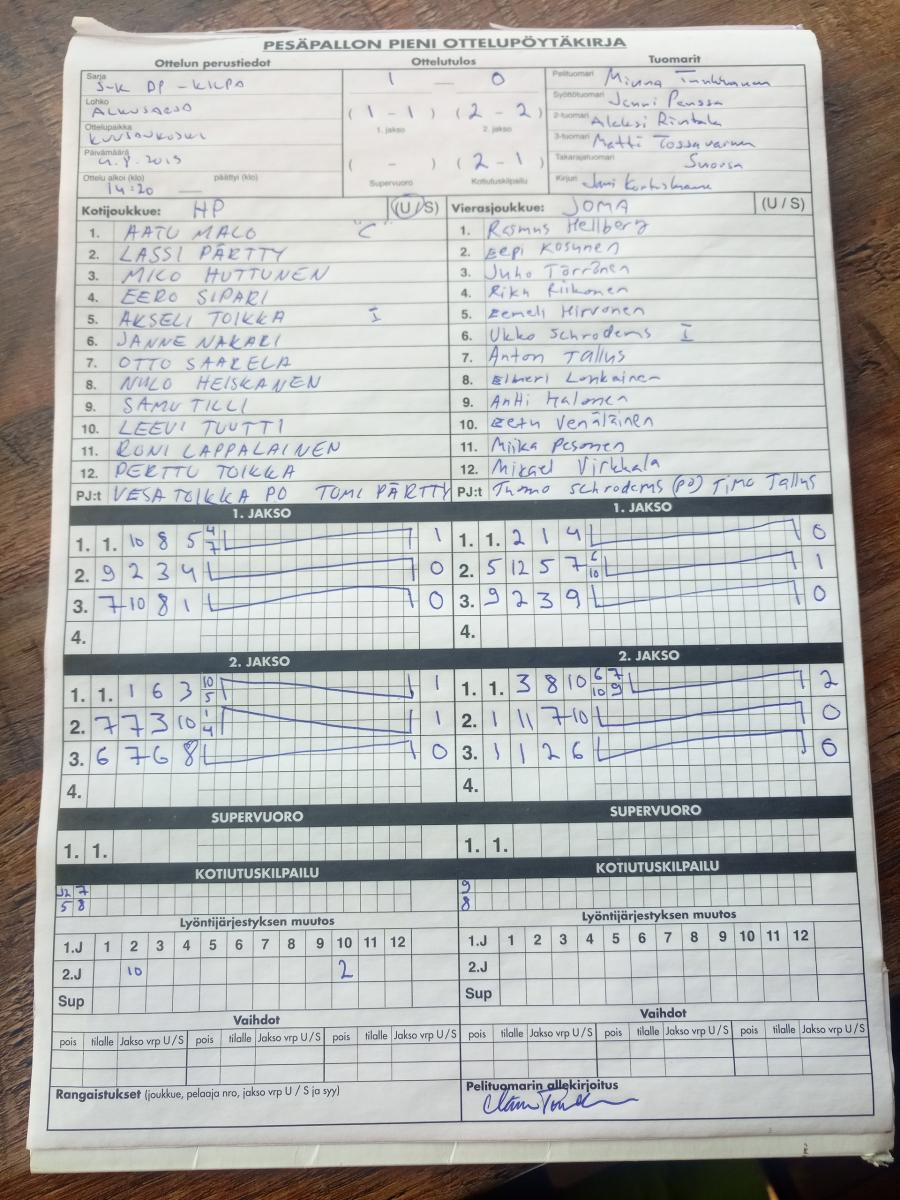 PESÄPALLON PIENI OTTELUPÖYTÄKIRJA
Ottelun perustiedot Ottelutulos Tuomarit
Sarja DP - KILPA 1 — 0 Pelituomari Minna
Lohko ALKUSARJA ( 1 - 1 ) ( 2 - 2 ) Syöttötuomari Jenni Penssa
1. jakso 2. jakso 2-tuomari Aleksi Rintala
Ottelupaikka KUUSANKOSKI 3-tuomari Matti Tossavainen
Päivämäärä 4.8.2019 ( - ) ( 2 - 1 ) Takarajatuomari Suorsa
Ottelu alkoi (klo) 14:20 päättyi (klo) Supervuoro Kotiutuskilpailu Kirjuri Jani
Kotijoukkue: HP (U/S) Vierasjoukkue: JOMA (U / S)
1. AATU MALO "C" 1. Rasmus Hellberg
2. LASSI PÄRTTY 2. Eepi Kosunen
3. MICO HUTTUNEN 3. Juho Törrönen
4. EERO SIPARI 4. Riku Riikonen
5. AKSELI TOIKKA I 5. Eemeli Hirvonen
6. JANNE NAKARI 6. Ukko Schroderus I
7. OTTO SAARELA 7. Anton Tallus
8. NIILO HEISKANEN 8. Elmeri Lonkainen
9. SAMU TILLI 9. Antti Halonen
10. LEEVI TUUTTI 10. Eetu Venäläinen
11. RONI LAPPALAINEN 11. Miika Pesonen
12. PERTTU TOIKKA 12. Mikael Virkkala
PJ:t VESA TOIKKA PO TOMI PÄRTTY PJ:t Tuomo Schroderus (PO) Timo Tallus
1. JAKSO 1. JAKSO
1. 1. 10 8 5 4 7 1 1. 1. 2 1 4 0
2. 9 2 3 4 0 2. 5 12 5 7 6 10 1
3. 7 10 8 1 0 3. 9 2 3 9 0
4. 4.
2. JAKSO 2. JAKSO
1. 1. 1 6 3 10 5 1 1. 1. 3 8 10 6 7 10 9 2
2. 7 7 3 10 1 4 1 2. 1 11 7 10 0
3. 6 7 6 8 0 3. 1 1 2 6 0
4. 4.
SUPERVUORO SUPERVUORO
1. 1. 1. 1.
KOTIUTUSKILPAILU KOTIUTUSKILPAILU
12 7 9
5 8 8
Lyöntijärjestyksen muutos Lyöntijärjestyksen muutos
1.J 1 2 3 4 5 6 7 8 9 10 11 12 1.J 1 2 3 4 5 6 7 8 9 10 11 12
2.J 10 2 2.J
Sup Sup
Vaihdot Vaihdot
pois tilalle Jakso vrp U / S pois tilalle Jakso vrp U / S pois tilalle Jakso vrp U / S pois tilalle Jakso vrp U / S pois tilalle Jakso vrp U / S pois tilalle Jakso vrp U / S
Rangaistukset (joukkue, pelaaja nro, jakso vrp U / S ja syy) Pelituomarin allekirjoitus